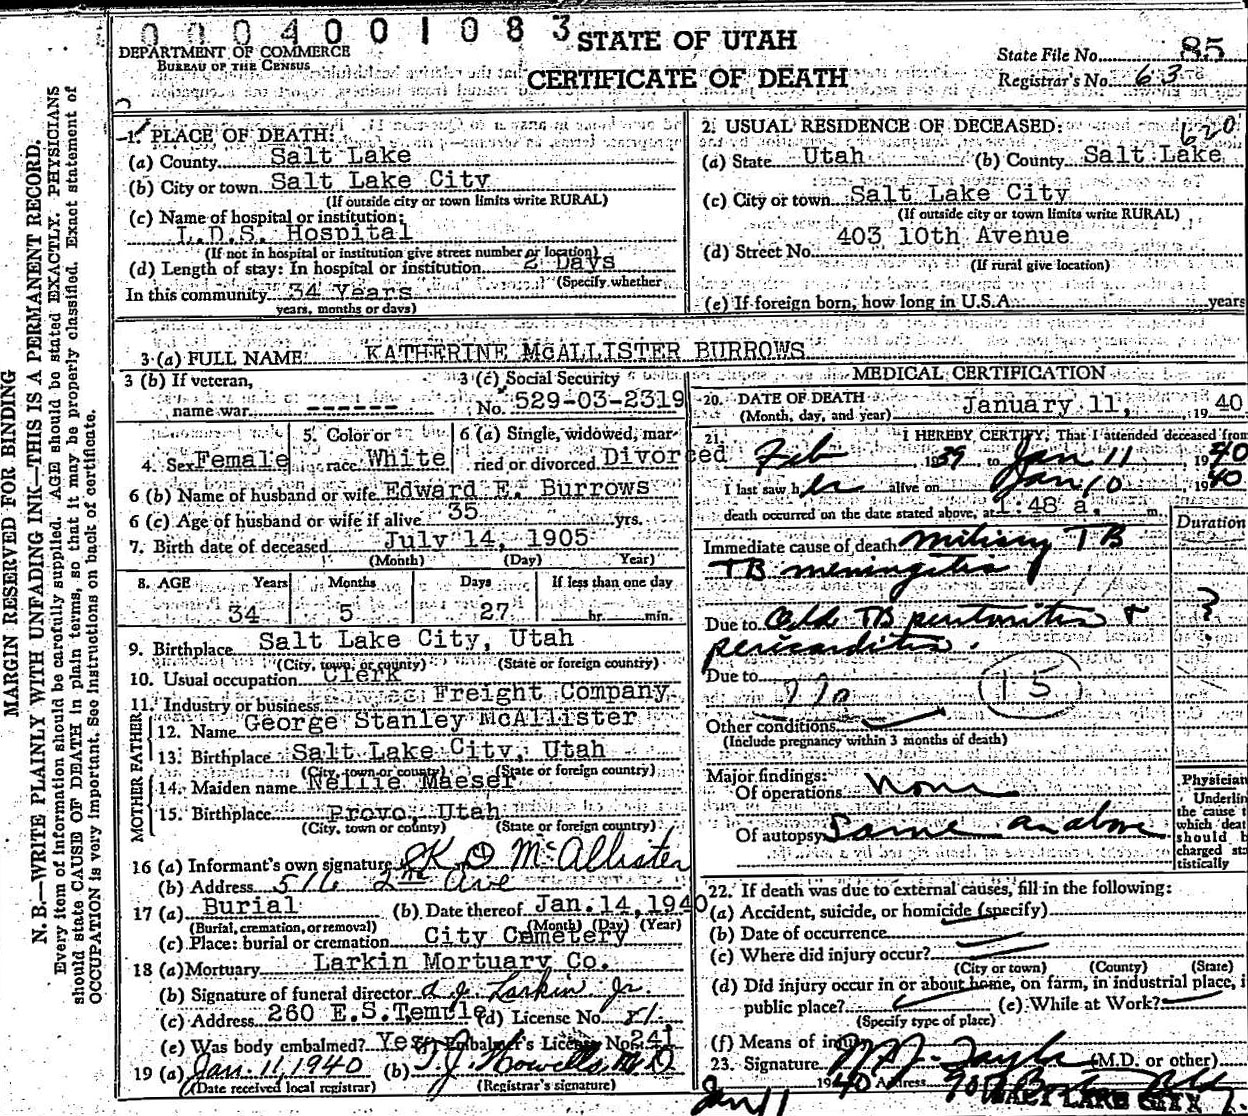 0004001083
STATE OF UTAH
CERTIFICATE OF DEATH
DEPARTMENT OF COMMERCE
BUREAU OF THE CENSUS
State File No. 85
Registrar's No. 63
MARGIN RESERVED FOR BINDING
N. B.—WRITE PLAINLY WITH UNFADING INK—THIS IS A PERMANENT RECORD.
Every item of information should be carefully supplied. AGE should be stated EXACTLY. PHYSICIANS
should state CAUSE OF DEATH in plain terms, so that it may be properly classified. Exact statement of
OCCUPATION is very important. See instructions on back of certificate.
1. PLACE OF DEATH:
(a) County Salt Lake
(b) City or town Salt Lake City
(If outside city or town limits write RURAL)
(c) Name of hospital or institution:
L.D.S. Hospital
(If not in hospital or institution give street number or location)
(d) Length of stay: In hospital or institution 2 Days
(Specify whether
In this community 34 Years
years, months or days)
2. USUAL RESIDENCE OF DECEASED:
620
(a) State Utah (b) County Salt Lake
(c) City or town Salt Lake City
(If outside city or town limits write RURAL)
(d) Street No. 403 10th Avenue
(If rural give location)
(e) If foreign born, how long in U.S.A. years
3 (a) FULL NAME KATHERINE McALLISTER BURROWS
3 (b) If veteran, name war ------
3 (c) Social Security No. 529-03-2319
4. Sex Female
5. Color or race White
6 (a) Single, widowed, married or divorced Divorced
6 (b) Name of husband or wife Edward E. Burrows
6 (c) Age of husband or wife if alive 35 yrs.
7. Birth date of deceased July 14, 1905
(Month) (Day) Year)
8. AGE Years Months Days If less than one day
34 5 27 hr. min.
9. Birthplace Salt Lake City, Utah
(City, town, or county) (State or foreign country)
10. Usual occupation Clerk
11. Industry or business Freight Company
FATHER
12. Name George Stanley McAllister
13. Birthplace Salt Lake City, Utah
(City, town or county) (State or foreign country)
MOTHER
14. Maiden name Nellie Maeser
15. Birthplace Provo, Utah
(City, town or county) (State or foreign country)
16 (a) Informant's own signature McAllister
(b) Address 516 2nd Ave
17 (a) Burial (b) Date thereof Jan. 14, 1940
(Burial, cremation, or removal) (Month) (Day) (Year)
(c) Place: burial or cremation City Cemetery
18 (a) Mortuary Larkin Mortuary Co.
(b) Signature of funeral director A J Larkin Jr.
(c) Address 260 E.S.Temple (d) License No. 81
(e) Was body embalmed? Yes (f) Embalmer's License No. 241
19 (a) Jan. 11, 1940 (b) T.J. Howells, M D
(Date received local registrar) (Registrar's signature)
MEDICAL CERTIFICATION
20. DATE OF DEATH
(Month, day, and year) January 11, 1940
21. I HEREBY CERTIFY, That I attended deceased from
Feb 1939 to Jan 11 1940
I last saw her alive on Jan 10 1940
death occurred on the date stated above, at 1:48 a. m.
Duration
Immediate cause of death miliary TB
TB meningitis
Due to Old TB peritonitis & ?
pericarditis.
Due to
15
Other conditions
(Include pregnancy within 3 months of death)
Major findings:
Of operations None
Of autopsy Same as above
Physician
Underlin
the cause t
which deat
should b
charged sta
tistically
22. If death was due to external causes, fill in the following:
(a) Accident, suicide, or homicide (specify)
(b) Date of occurrence
(c) Where did injury occur?
(City or town) (County) (State)
(d) Did injury occur in or about home, on farm, in industrial place, i
public place? (e) While at Work?
(Specify type of place)
(f) Means of injury
23. Signature (M.D. or other)
Jan 11 1940 Address
SALT LAKE CITY